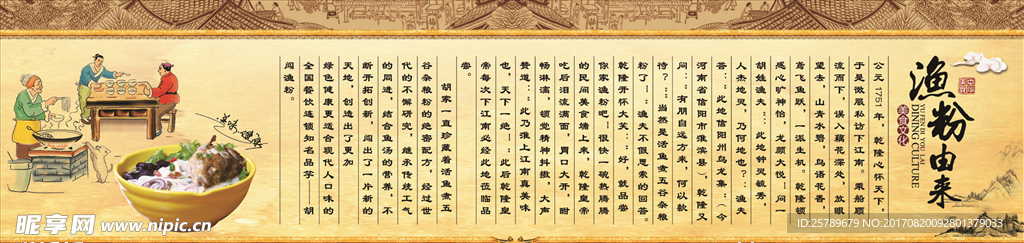 渔粉由来
YUFEN YOU LAI
DINING CULTURE
美食文化
公元1751年,乾隆心怀天下,
于是微服私访下江南。乘船顺
流而下,误入藕花深处,放眼
望去,山青水碧,鸟语花香,
鸢飞鱼跃,一派生机。乾隆顿
感心旷神怡,龙颜大悦!问一
胡姓渔夫:“此地钟灵毓秀,
人杰地灵,乃何地也?”渔夫
答:“此地信阳州乌龙集”(今
河南省信阳市淮滨县),乾隆又
问:“有朋自远方来,何以款
待?”“当然是活鱼煮五谷杂粮
粉了!”渔夫不假思索的回答。
乾隆开怀大笑:“好,就品尝
你家渔粉吧!”很快一碗热腾腾
的民间美食端上来,乾隆皇帝
吃后泪流满面,胃口大开,酣
畅淋漓,顿觉精神抖擞,大声
赞道:“此乃淮上江南真美味
也,天下一绝!”此后乾隆皇
帝每次下江南必经此地莅临品
尝。
胡家一直珍藏着活鱼煮五
谷杂粮粉的绝密配方,经过世
代的不懈研究,继承传统工气
的同进,结合鱼汤的营养,不
断开拓创新,闯出了一片新的
天地,创造出了更加
绿色健康更适合现代人口味的
全国餐饮连锁知名品——胡
闯渔粉。
昵享网 www.nipic.cn
www.nipic.com
ID:25789679 NO:20170820092801379033